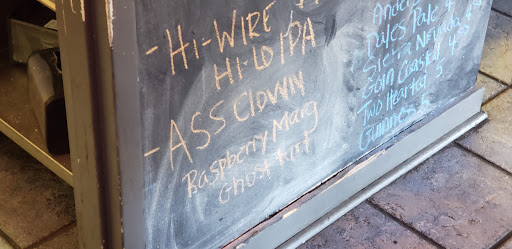 - Hi-Wire
Hi-Lo IPA
- ASS Clown
Raspberry Marg
Ghost Fart
Ande
Dales Pale 4
Sierra Nevada 4
Goin Coastal 4.5
Two Hearted 5
Guinness 5